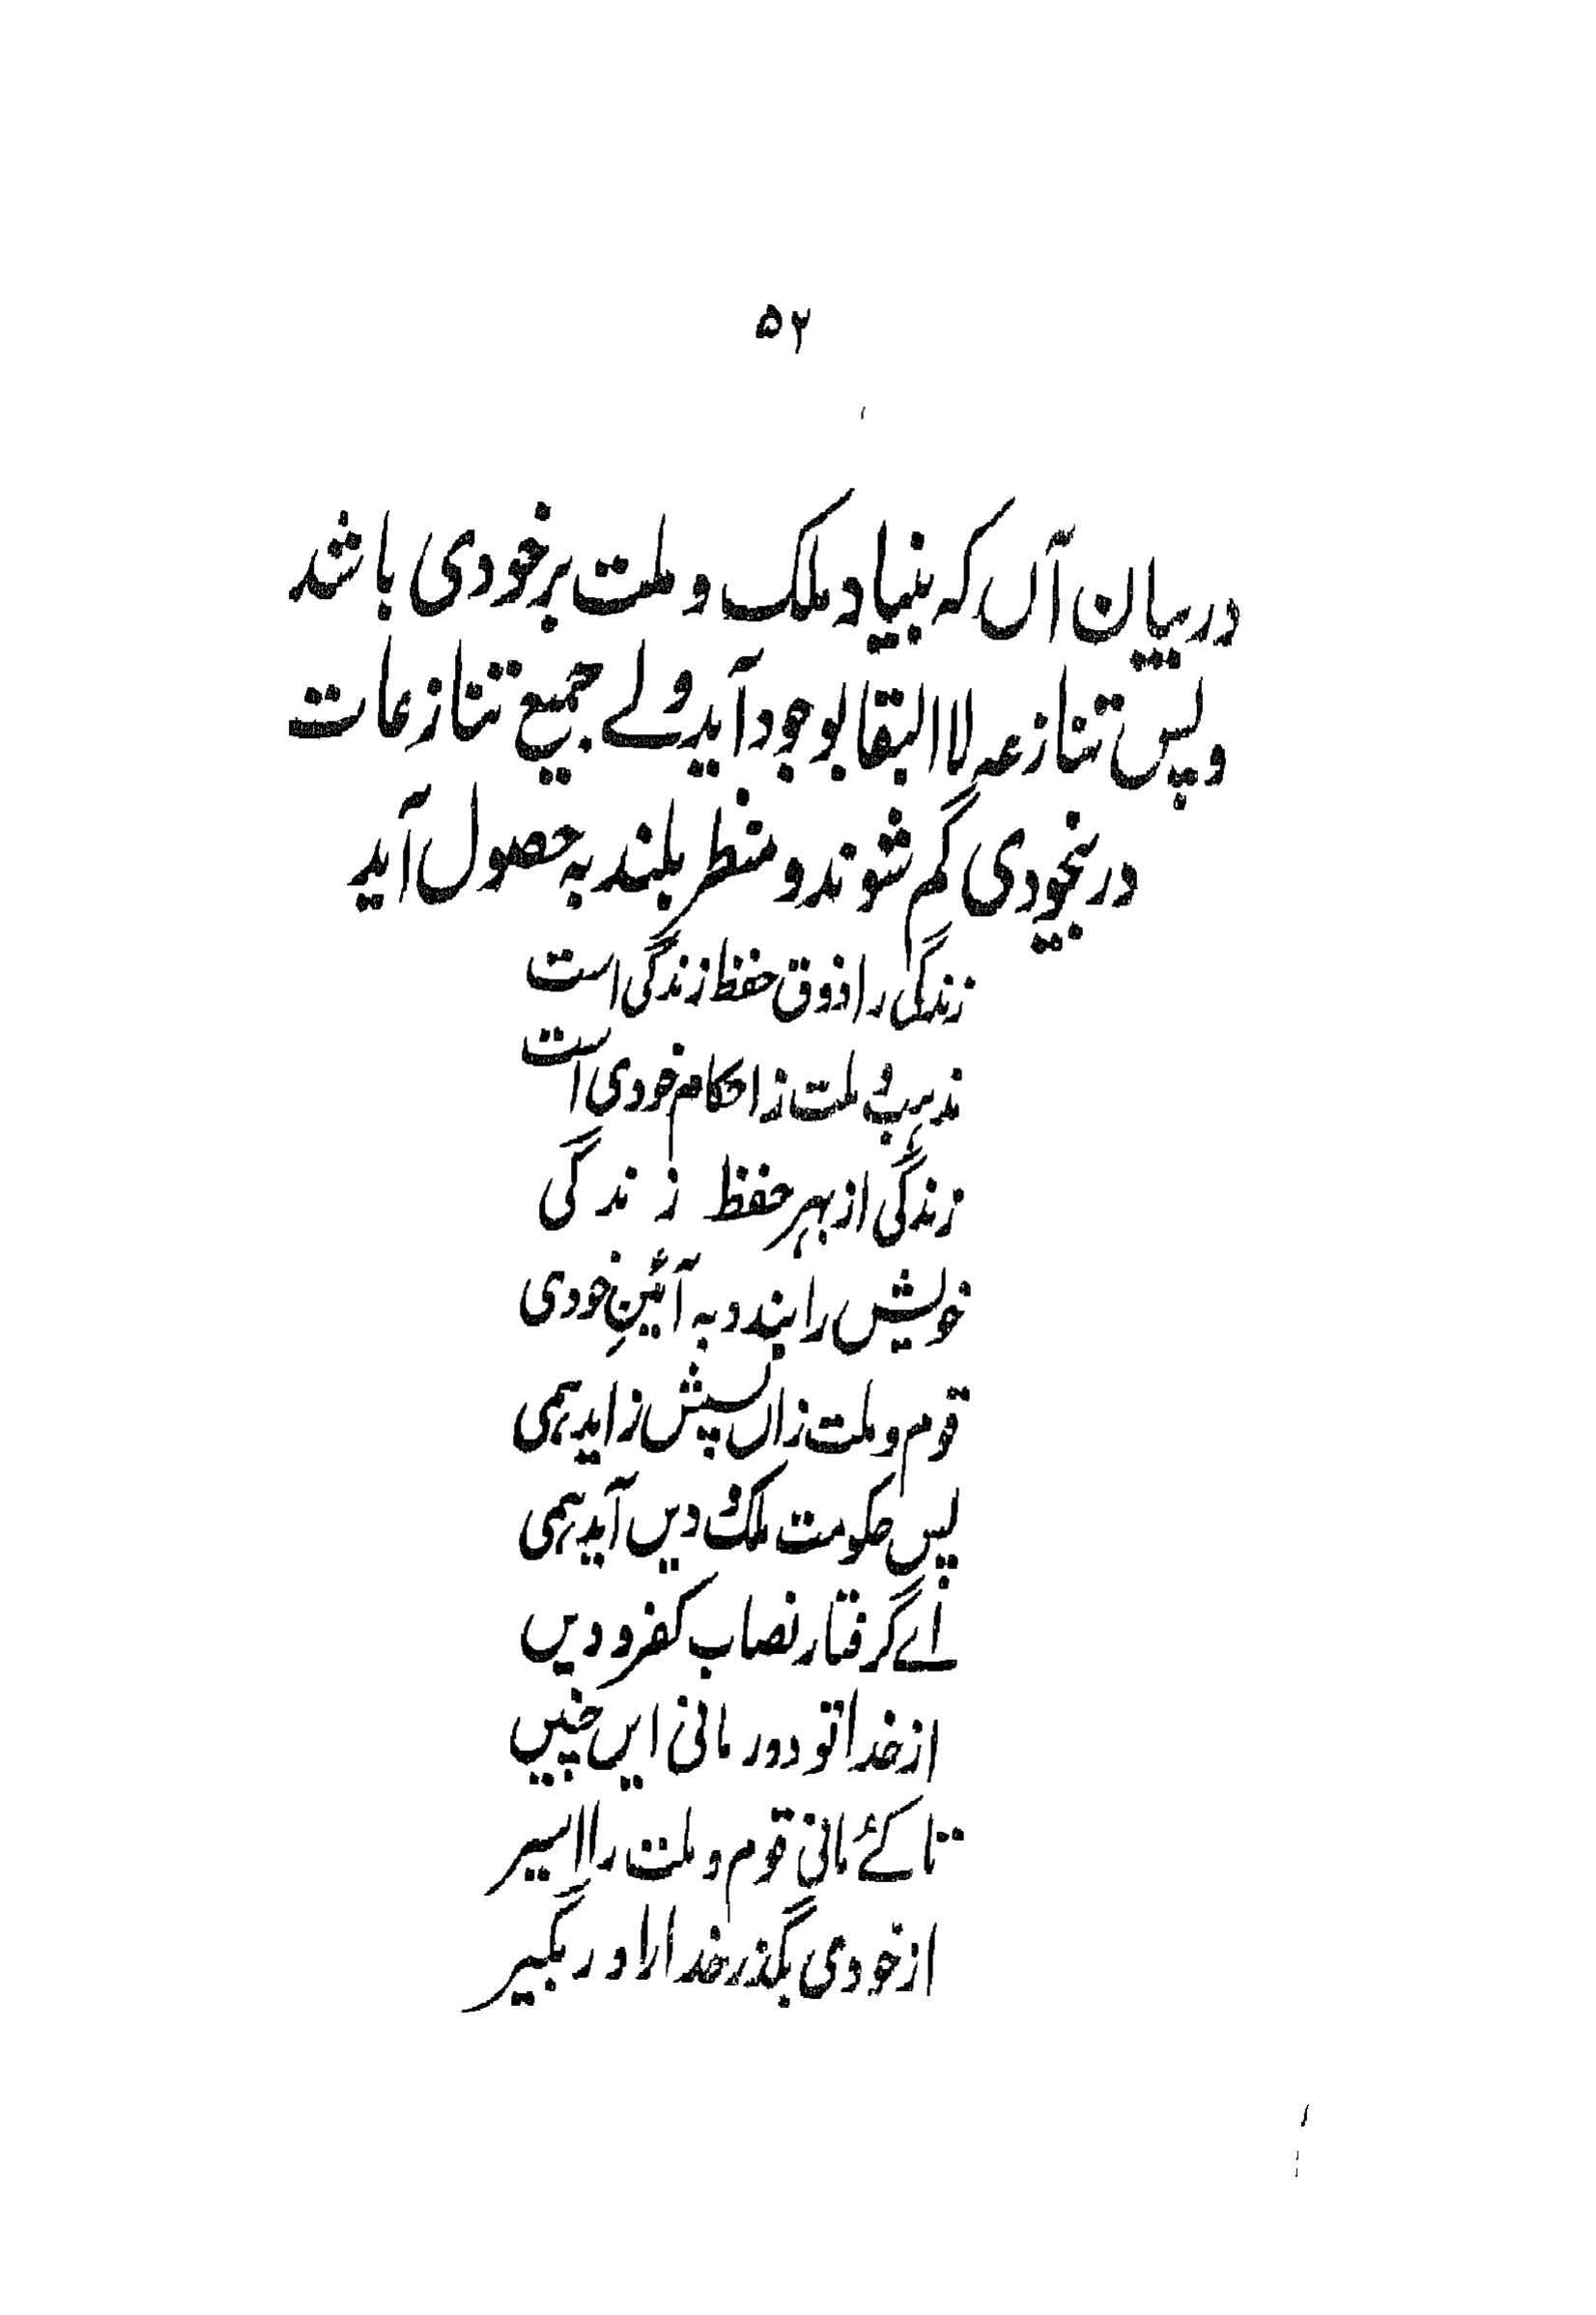 ۵۲
در بیان آں کہ بنیاد ملک و ملت بر خودی باشد
و پس تنازعہ لا البقا بوجود آید ولے جمیع تنازعات
در بیخودی گم شوند و منظر بلند بہ حصول آید
زندگی را ذوق حفظ زندگی است
مذہب و ملت ز احکام خودی است
زندگی از بہر حفظ زندگی
خویش را بندد بہ آئینِ خودی
قوم و ملت زاں سپس زاید ہمی
پس حکومت ملک و دیں آید ہمی
اے گرفتار نصاب کفر و دیں
از خدا تو دور مانی ایں چنیں
تا کئے مانی قوم و ملت را اسیر
از خودی بگذر خدا را در بگیر